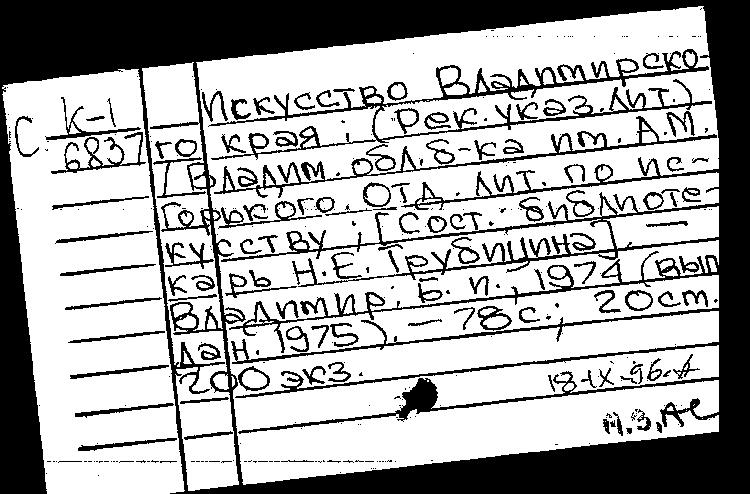 С К-1
6837
Искусство Владимирско-
го края ; (Рек. указ. лит.)
/ Владим. обл. б-ка им. А.М.
Горького. Отд. лит. по ис-
кусству ; [Сост. библиоте-
карь Н.Е. Трубицина]. —
Владимир : Б. и., 1974 (вып
лан. 1975). — 78 с.; 20 см.
200 экз.
18-IX-96.